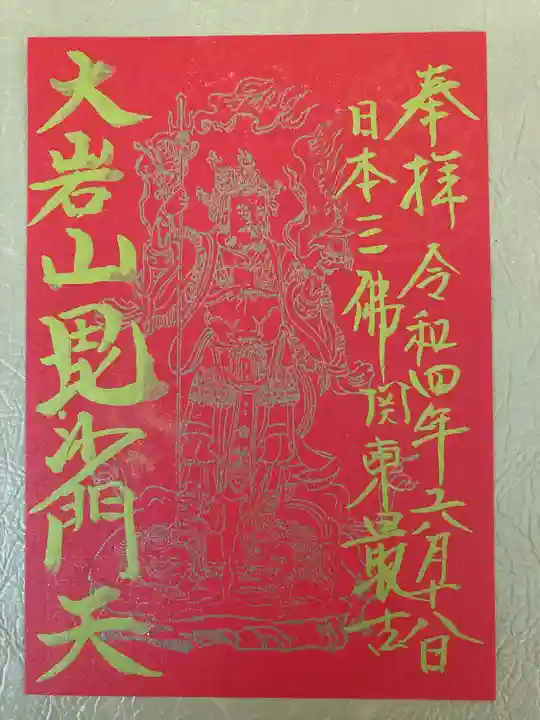 奉拝 令和四年六月十八日
日本三佛 関東最古
大岩山毘沙門天